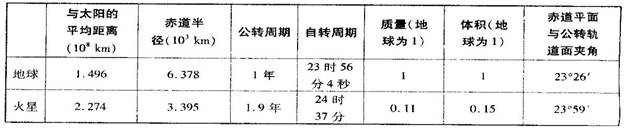 与太阳的平均距离(10⁸ km) 赤道半径(10³ km) 公转周期 自转周期 质量(地球为1) 体积(地球为1) 赤道平面与公转轨道面夹角
地球 1.496 6.378 1年 23时56分4秒 1 1 23°26′
火星 2.274 3.395 1.9年 24时37分 0.11 0.15 23°59′